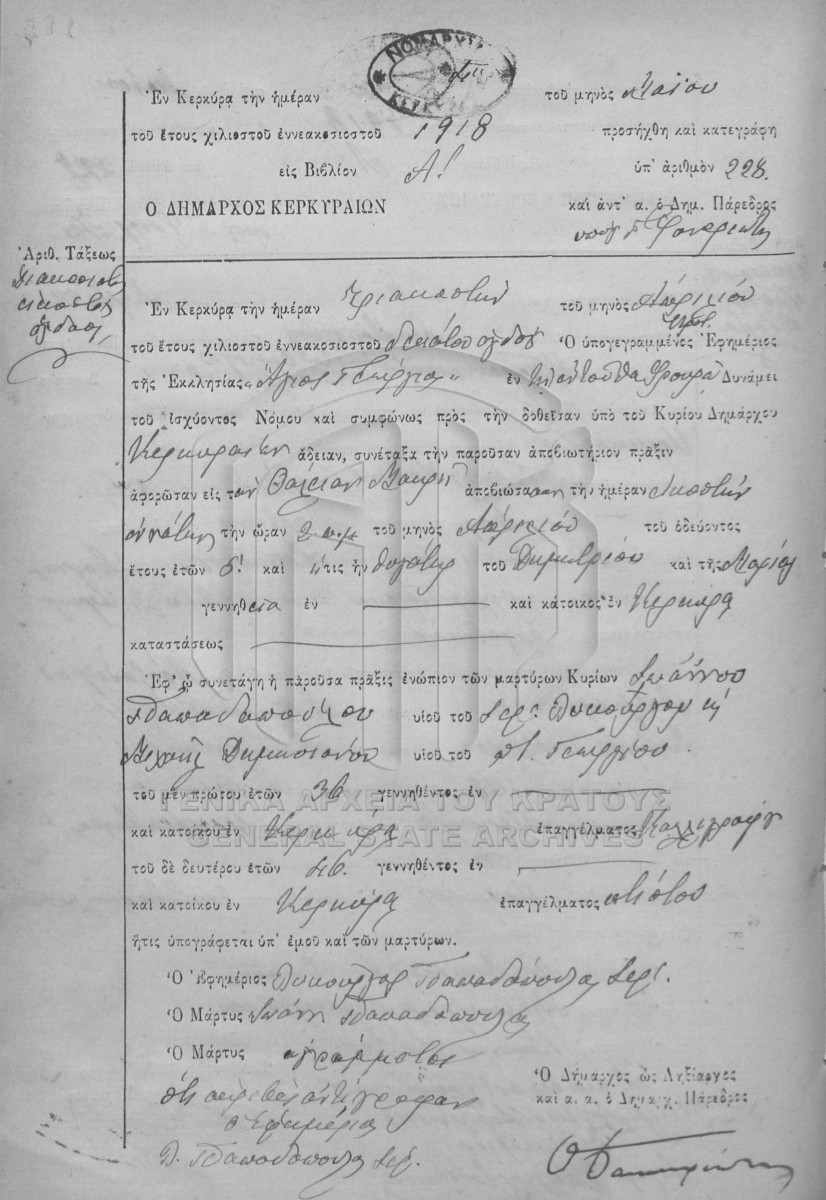 ΝΟΜΑΡΧΙΑ
ΚΕΡΚΥΡΑΣ
Ἐν Κερκύρᾳ τὴν ἡμέραν τοῦ μηνὸς Μαΐου
τοῦ ἔτους χιλιοστοῦ ἐννεακοσιοστοῦ 1918 προσήχθη καὶ κατεγράφη
εἰς Βιβλίον Α! ὑπ' ἀριθμὸν 228.
Ο ΔΗΜΑΡΧΟΣ ΚΕΡΚΥΡΑΙΩΝ καὶ ἀντ' α. ὁ Δημ. Πάρεδρος
Ἀριθ. Τάξεως
Διακοσιοστὸς
εἰκοστὸς
ὄγδοος
Ἐν Κερκύρᾳ τὴν ἡμέραν τριακοστὴν τοῦ μηνὸς Ἀπριλίου
τοῦ ἔτους χιλιοστοῦ ἐννεακοσιοστοῦ δεκάτου ὀγδόου Ὁ ὑπογεγραμμένος Ἐφημέριος
τῆς Ἐκκλησίας „Ἅγιος Γεώργιος" ἐν ἐνταῦθα Φρουρᾷ Δυνάμει
τοῦ ἰσχύοντος Νόμου καὶ συμφώνως πρὸς τὴν δοθεῖσαν ὑπὸ τοῦ Κυρίου Δημάρχου
Κερκυραίων ἄδειαν, συνέταξα τὴν παροῦσαν ἀποβιωτήριον πρᾶξιν
ἀφορῶσαν εἰς τὴν Μακρῆ ἀποβιώσασαν τὴν ἡμέραν εἰκοστὴν
ἐννάτην τὴν ὥραν 2 π.μ τοῦ μηνὸς Ἀπριλίου τοῦ ὁδεύοντος
ἔτους ἐτῶν 6! καὶ ἥτις ἦν θυγάτηρ τοῦ Δημητρίου καὶ τῆς Μαρίας
γεννηθεῖσα ἐν καὶ κάτοικος ἐν Κερκύρᾳ
καταστάσεως
Ἐφ' ᾧ συνετάγη ἡ πἀροῦσα πρᾶξις ἐνώπιον τῶν μαρτύρων Κυρίων Ἰωάννου
Παπαδοπούλου υἱοῦ τοῦ Ἱερ. Λυκούργου κὴ
Μιχαὴλ υἱοῦ τοῦ Γεωργίου.
τοῦ μὲν πρώτου ἐτῶν 36 γεννηθέντος ἐν
ΓΕΝΙΚΑ ΑΡΧΕΙΑ ΤΟΥ ΚΡΑΤΟΥΣ
καὶ κατοίκου ἐν Κερκύρᾳ ἐπαγγέλματος Καλλιγράφου
GENERAL STATE ARCHIVES
τοῦ δὲ δευτέρου ἐτῶν 46. γεννηθέντος ἐν
καὶ κατοίκου ἐν Κερκύρᾳ ἐπαγγέλματος κτίστου
ἥτις ὑπογράφεται ὑπ' ἐμοῦ καὶ τῶν μαρτύρων.
Ὁ Ἐφημέριος Λυκοῦργος Παπαδόπουλος Ἱερ.
Ὁ Μάρτυς Ἰωάν. Παπαδόπουλος
Ὁ Μάρτυς ἀγράμματος
Ὅτι ἀκριβὲς ἀντίγραφον
ὁ Ἐφημέριος
Λ. Παπαδόπουλος Ἱερ.
Ὁ Δήμαρχος ὡς Ληξίαρχος
καὶ α. α. ὁ Δημαρχ. Πάρεδρος